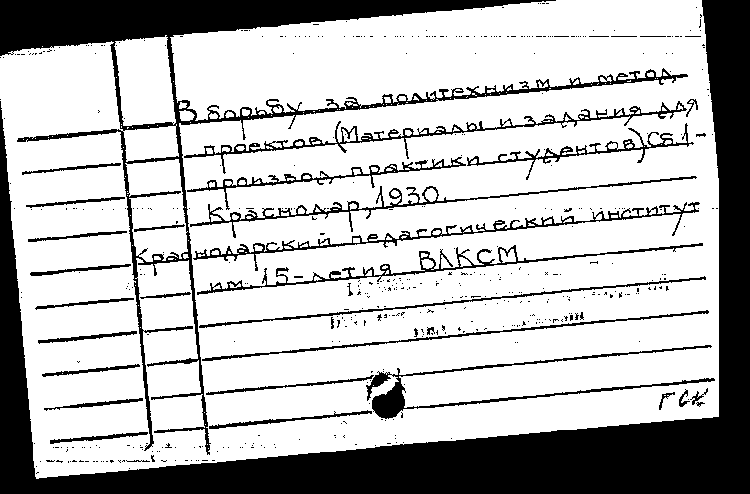 В борьбу за политехнизм и метод
проектов. (Материалы и задания для
производ. практики студентов) Сб.1-
Краснодар, 1930.
Краснодарский педагогический институт
им. 15-летия ВЛКСМ.
ГСК